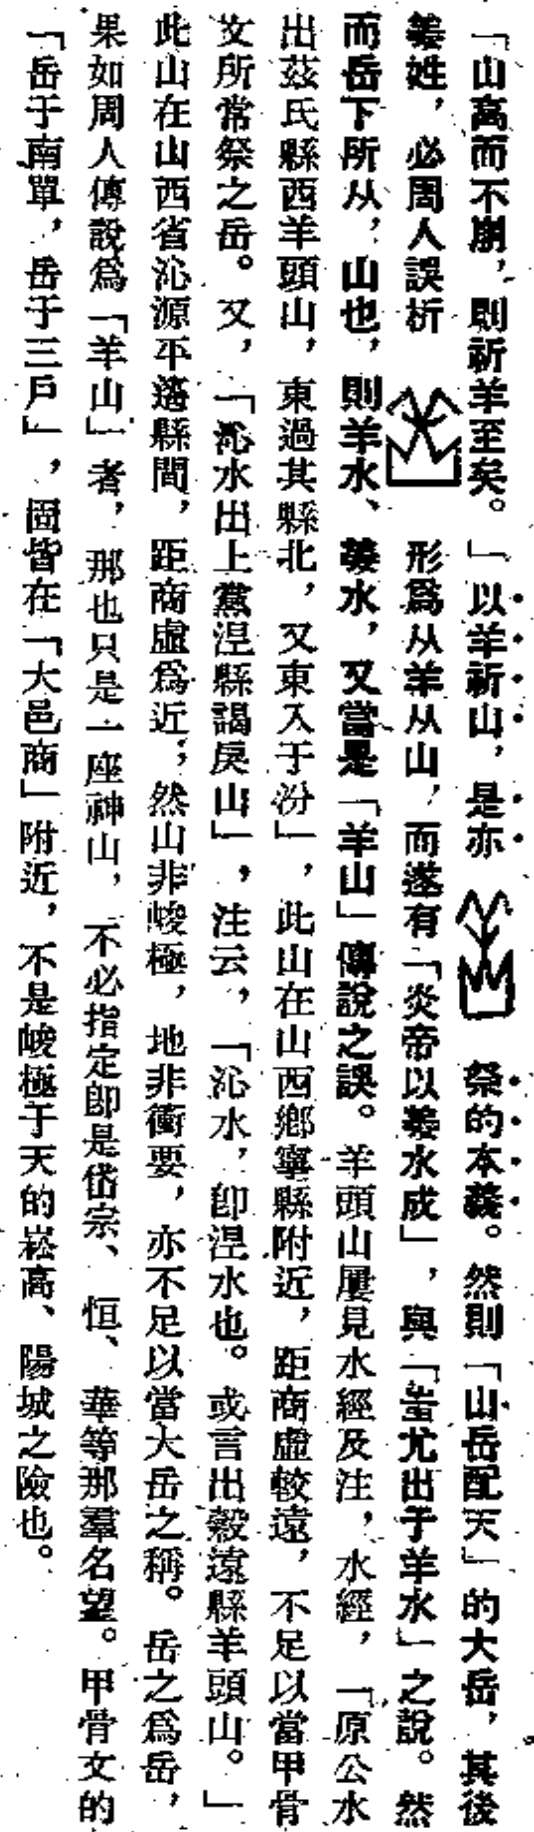 「山高而不崩，則祈羊至矣。」以羊祈山，是亦祭的本義。然則「山岳配天」的大岳，其後
姜姓，必周人誤析形爲从羊从山，而遂有「炎帝以姜水成」，與「蚩尤出于羊水」之說。然
而岳下所从，山也，則羊水、姜水，又當是「羊山」傳說之誤。羊頭山屢見水經及注，水經，「原公水
出茲氏縣西羊頭山，東過其縣北，又東入于汾」，此山在山西鄉寧縣附近，距商虛較遠，不足以當甲骨
文所常祭之岳。又，「沁水出上黨涅縣謁戾山」，注云，「沁水，卽涅水也。或言出穀遠縣羊頭山。」
此山在山西省沁源平遙縣間，距商虛爲近，然山非峻極，地非衝要，亦不足以當大岳之稱。岳之爲岳，
果如周人傳說爲「羊山」者，那也只是一座神山，不必指定卽是岱宗、恒、華等那羣名望。甲骨文的
「岳于南單，岳于三戶」，固皆在「大邑商」附近，不是峻極于天的崧高、陽城之險也。